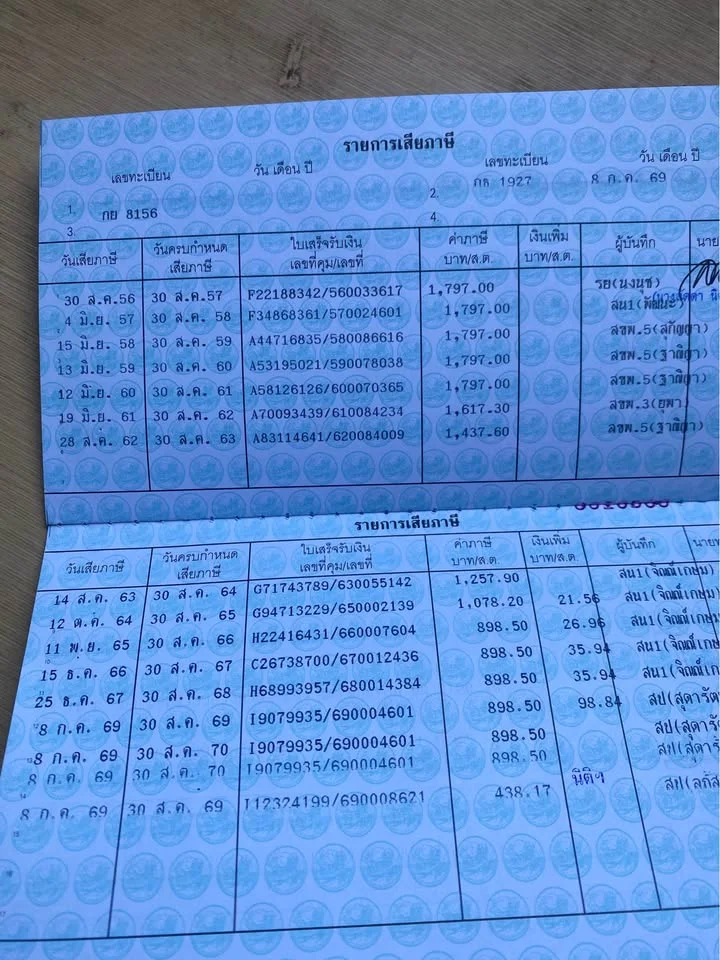 รายการเสียภาษี
เลขทะเบียน วัน เดือน ปี เลขทะเบียน วัน เดือน ปี
1. กย 8156 2. 1927 8 ก.ค. 69
3. 4.
วันเสียภาษี วันครบกำหนดเสียภาษี ใบเสร็จรับเงิน เลขที่คุม/เลขที่ ค่าภาษี บาท/ส.ต. เงินเพิ่ม บาท/ส.ต. ผู้บันทึก
30 ส.ค.56 30 ส.ค.57 F22188342/560033617 1,797.00 รย(นงนุช)
4 มิ.ย. 57 30 ส.ค. 58 F34868361/570024601 1,797.00 สน1(พัฒนะ)
15 มิ.ย. 58 30 ส.ค. 59 A44716835/580086616 1,797.00 สขพ.5(สุกัญญา)
13 มิ.ย. 59 30 ส.ค. 60 A53195021/590078038 1,797.00 สขพ.5(ฐาณิญา)
12 มิ.ย. 60 30 ส.ค. 61 A58126126/600070365 1,797.00 สขพ.5(ฐาณิญา)
19 มิ.ย. 61 30 ส.ค. 62 A70093439/610084234 1,617.30 สขพ.3(ยุพา)
28 ส.ค. 62 30 ส.ค. 63 A83114641/620084009 1,437.60 สขพ.5(ฐาณิญา)
รายการเสียภาษี
วันเสียภาษี วันครบกำหนดเสียภาษี ใบเสร็จรับเงิน เลขที่คุม/เลขที่ ค่าภาษี บาท/ส.ต. เงินเพิ่ม บาท/ส.ต. ผู้บันทึก
14 ส.ค. 63 30 ส.ค. 64 G71743789/630055142 1,257.90 สน1(จิณณ์เกษม)
12 ต.ค. 64 30 ส.ค. 65 G94713229/650002139 1,078.20 21.56 สน1(จิณณ์เกษม)
11 พ.ย. 65 30 ส.ค. 66 H22416431/660007604 898.50 26.96 สน1(จิณณ์เกษม)
15 ธ.ค. 66 30 ส.ค. 67 C26738700/670012436 898.50 35.94 สน1(จิณณ์เกษ
25 ธ.ค. 67 30 ส.ค. 68 H68993957/680014384 898.50 35.94 สน1(จิณณ์เก
8 ก.ค. 69 30 ส.ค. 69 I9079935/690004601 898.50 98.84 สป(สุดารัต
8 ก.ค. 69 30 ส.ค. 70 I9079935/690004601 898.50 สป(สุดารัต
8 ก.ค. 69 30 ส.ค. 70 I9079935/690004601 898.50 สป(สุดาร
8 ก.ค. 69 30 ส.ค. 69 I12324199/690008621 438.17 นิติฯ